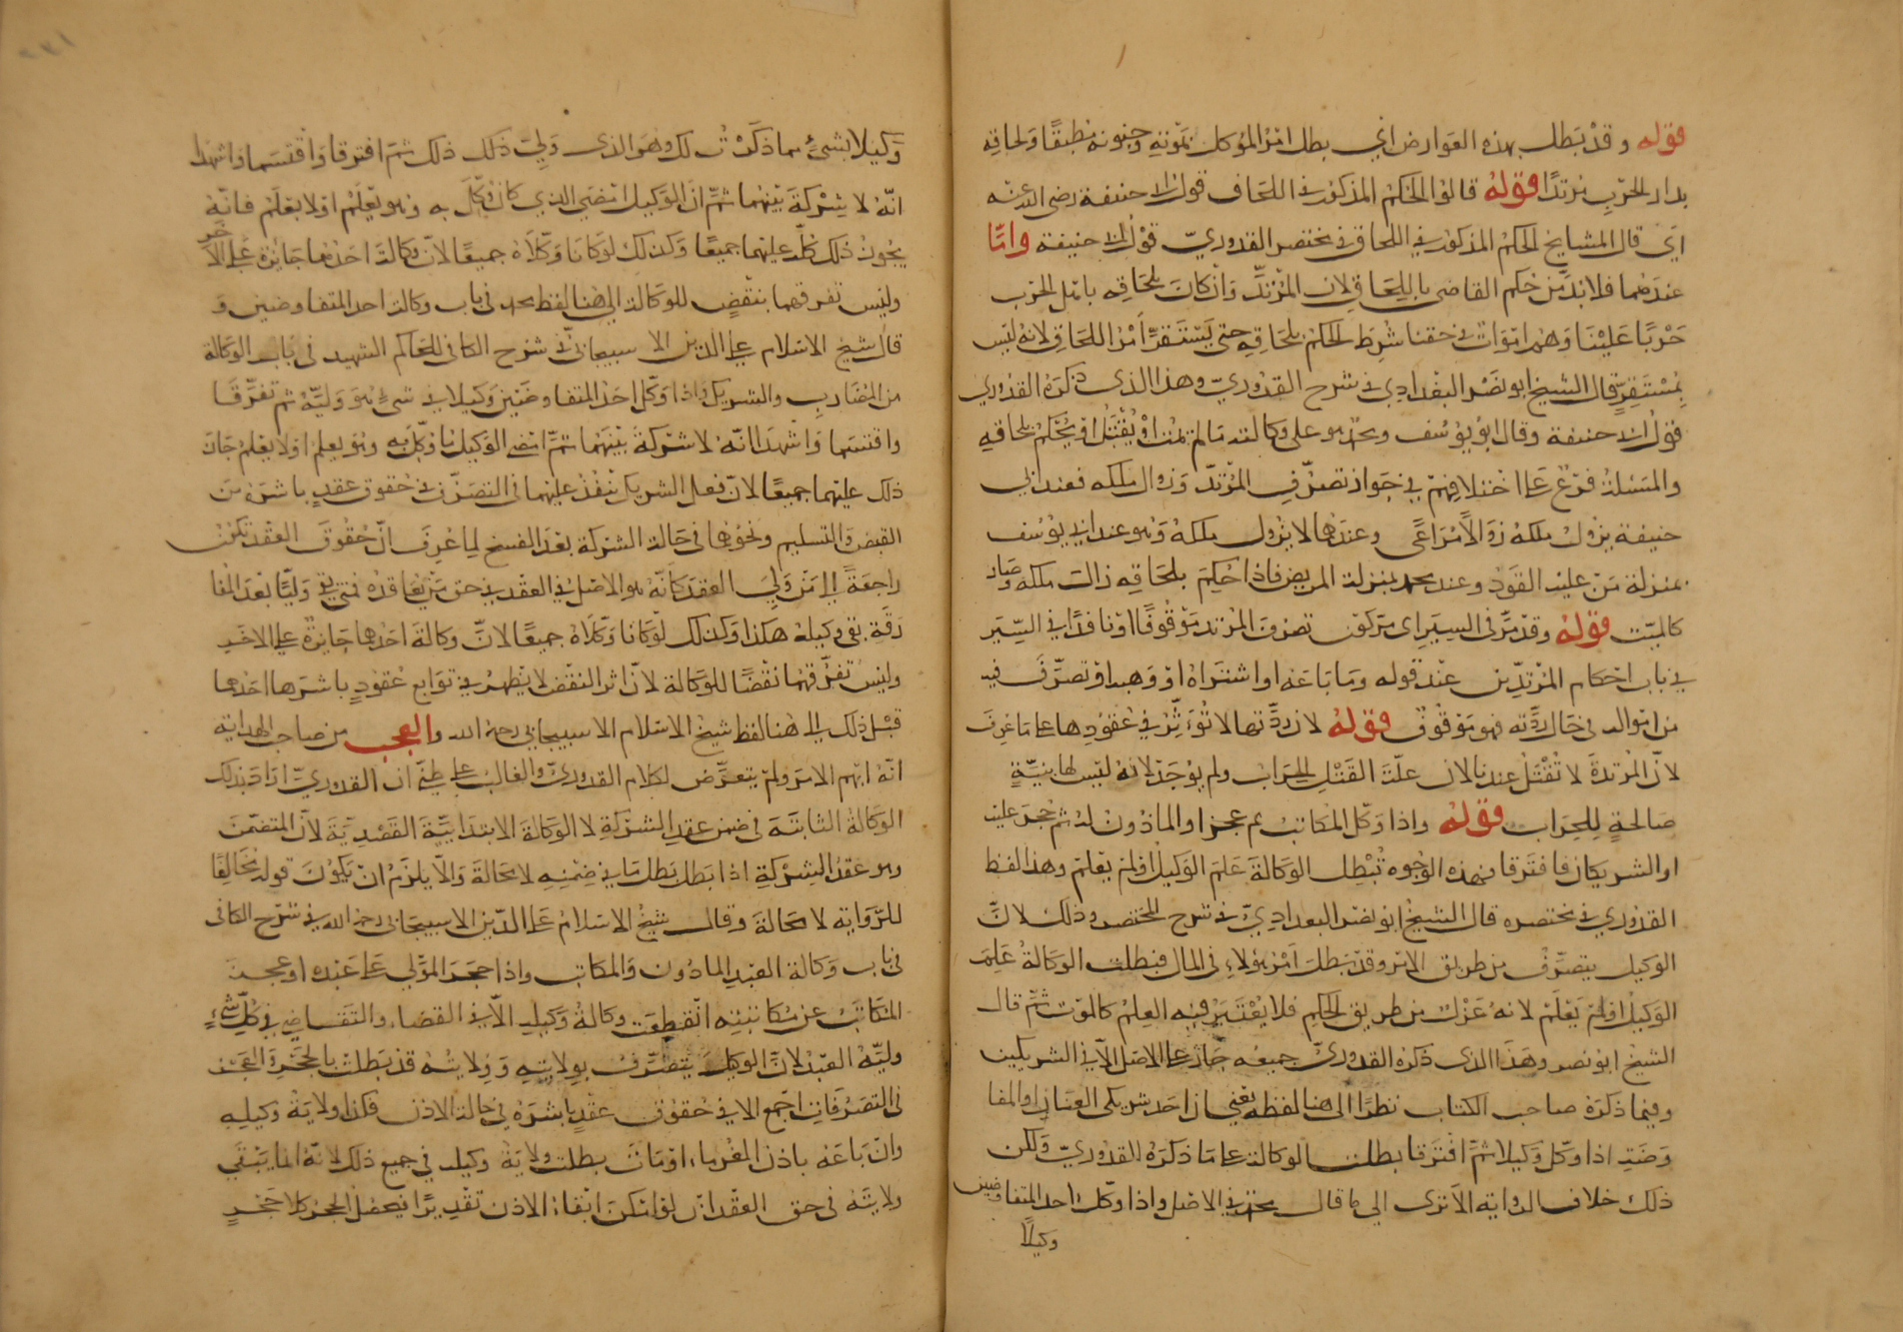 قوله وقد بطل بهذه العوارض اي بطل امر الموكل بموته وجنونه مطبقا ولحاقه
بدار الحرب مرتدا قوله قالوا الحكم المذكور في اللحاق قول ابي حنيفة رضي الله عنه
اي قال المشايخ الحكم المذكور في اللحاق في مختصر القدوري قول ابي حنيفة واما
عندهما فلا بد من حكم القاضي باللحاق لان المرتد وان كان بلحاقه باهل الحرب
حربا علينا وهم اموات في حقنا شرط الحكم بلحاقه حتى يستقر امر اللحاق لانه ليس
بمستقر قال الشيخ ابو نصر البغدادي في شرح القدوري وهذا الذي ذكره القدوري
قول ابي حنيفة وقال ابو يوسف ومحمد هو على وكالته ما لم يمت او يقتل او يحكم بلحاقه
والمسئلة فرع على اختلافهم في جواز تصرف المرتد وزوال ملكه فعند ابي
حنيفة يزول ملكه زوالا مراعى وعندهما لا يزول ملكه وهو عند ابي يوسف
بمنزلة من عليه القود وعند محمد بمنزلة المريض فاذا حكم بلحاقه زالت ملكه وصار
كالميت قوله وقد مر في السير اي مر كون تصرف المرتد موقوفا او نافذا في السير
في باب احكام المرتدين عند قوله وما باعه او اشتراه او وهبه او تصرف فيه
من امواله في حال ردته فهو موقوف قوله لان ردتها لا تؤثر في عقودها على ما عرف
لان المرتدة لا تقتل عندنا لان علة القتل الحراب ولم يوجد لانه ليس لها بنية
صالحة للحراب قوله واذا وكل المكاتب ثم عجز او الماذون له ثم حجر عليه
او الشريكان فافترقا فهذه الوجوه تبطل الوكالة علم الوكيل او لم يعلم وهذا لفظ
القدوري في مختصره قال الشيخ ابو نصر البغدادي في شرح المختصر وذلك لان
الوكيل يتصرف من طريق الامر وقد بطل امر هؤلاء في المال فبطلت الوكالة علم
الوكيل او لم يعلم لانه عزل من طريق الحكم فلا يعتبر فيه العلم كالموت ثم قال
الشيخ ابو نصر وهذا الذي ذكره القدوري جميعه جار على الاصل الا في الشريكين
وفيما ذكره صاحب الكتاب نظر الى هنا لفظه يعني ان احد شريكي العنان او المفا
وضة اذا وكل وكيلا ثم افترقا بطلت الوكالة على ما ذكره القدوري ولكن
ذلك خلاف الرواية الا ترى الى ما قال محمد في الاصل واذا وكل احد المتفاوضين
وكيلا
وكيلا بشيء مما ذكرت لك وهو الذي ولي ذلك ثم افترقا واقتسما واشهدا
انه لا شركة بينهما ثم ان الوكيل امضى الذي كان وكل به وهو يعلم او لا يعلم فانه
يجوز ذلك كله عليهما جميعا وكذلك لو كانا وكلاه جميعا لان وكالة احدهما جائزة على الاخر
وليس تفرقهما بنقض للوكالة الى هنا لفظ محمد في باب وكالة احد المتفاوضين و
قال شيخ الاسلام علي الدين الاسبيجابي في شرح الكافي للحاكم الشهيد في باب الوكالة
من المضارب والشريك واذا وكل احد المتفاوضين وكيلا في شيء هو وليه ثم تفرقا
واقتسما واشهدا انه لا شركة بينهما ثم امضى الوكيل ما وكل به وهو يعلم او لا يعلم جاز
ذلك عليهما جميعا لان فعل الشريك ينفذ عليهما في التصرف في حقوق عقد باشره من
القبض والتسليم ونحوها في حالة الشركة بعد الفسخ لما عرف ان حقوق العقد تكون
راجعة الى من ولي العقد كانه هو الاصل في العقد في حق من يعاقده فمتى بقي وليا بعد المفا
رقة بقي وكيله هكذا وكذلك لو كانا وكلاه جميعا لان وكالة احدهما جائزة على الاخر
وليس تفرقهما نقضا للوكالة لان اثر النقض لا يظهر في توابع عقود باشرها احدهما
قبل ذلك الى هنا لفظ شيخ الاسلام الاسبيجابي رحمه الله والعجب من صاحب الهداية
انه ابهم الامر ولم يتعرض لكلام القدوري والغالب على ظني ان القدوري اراد بذلك
الوكالة الثابتة في ضمن عقد الشركة لا الوكالة الابتدائية القصدية لان المتضمن
وهو عقد الشركة اذا بطل بطل ما في ضمنه لا محالة والا يلزم ان يكون قوله مخالفا
للرواية لا محالة وقال شيخ الاسلام علي الدين الاسبيجابي رحمه الله في شرح الكافي
في باب وكالة العبد الماذون والمكاتب واذا حجر المولى على عبده او عجز
المكاتب عن مكاتبته انقطعت وكالة وكيله الا في القضاء والتقاضي في كل شيء
وليه العبد لان الوكيل يتصرف بولايته وولايته قد بطلت بالحجر والعجز
في التصرفات اجمع الا في حقوق عقد باشره في حالة الاذن فكذا ولاية وكيله
وان باعه باذن الغرماء او مات بطلت ولاية وكيله في جميع ذلك لانه انما يبقى
ولايته في حق العقد ان لو امكن ابقاء الاذن تقديرا فيجعل الحجر كلا حجر